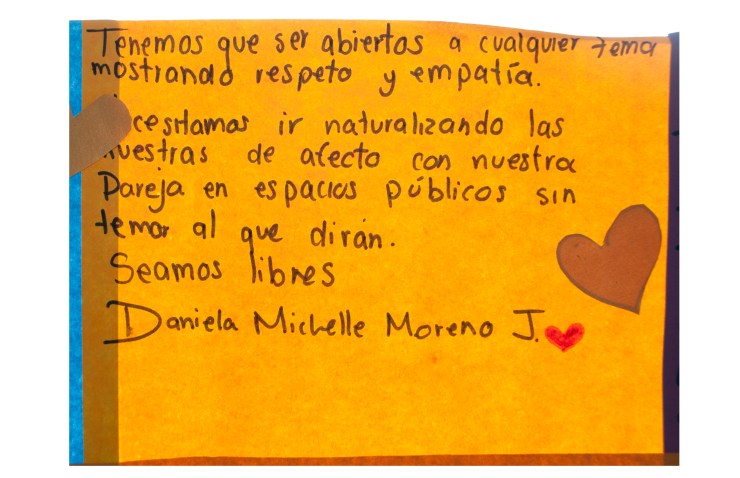 Tenemos que ser abiertos a cualquier tema
mostrando respeto y empatía.
cesitamos ir naturalizando las
muestras de afecto con nuestra
Pareja en espacios públicos sin
temor al que dirán.
Seamos libres
Daniela Michelle Moreno J.